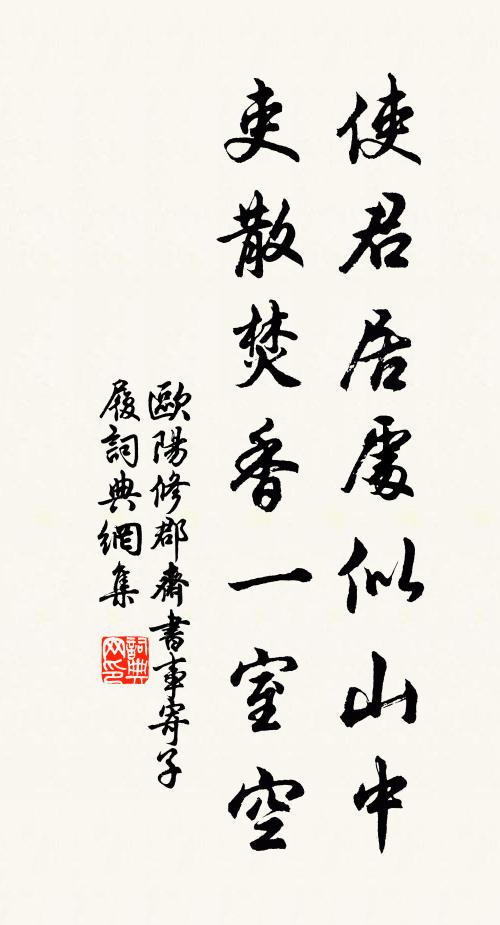 使君居處似山中
吏散焚香一室空
歐陽修郡齋書事寄子
履詞典網集
詞典
网印